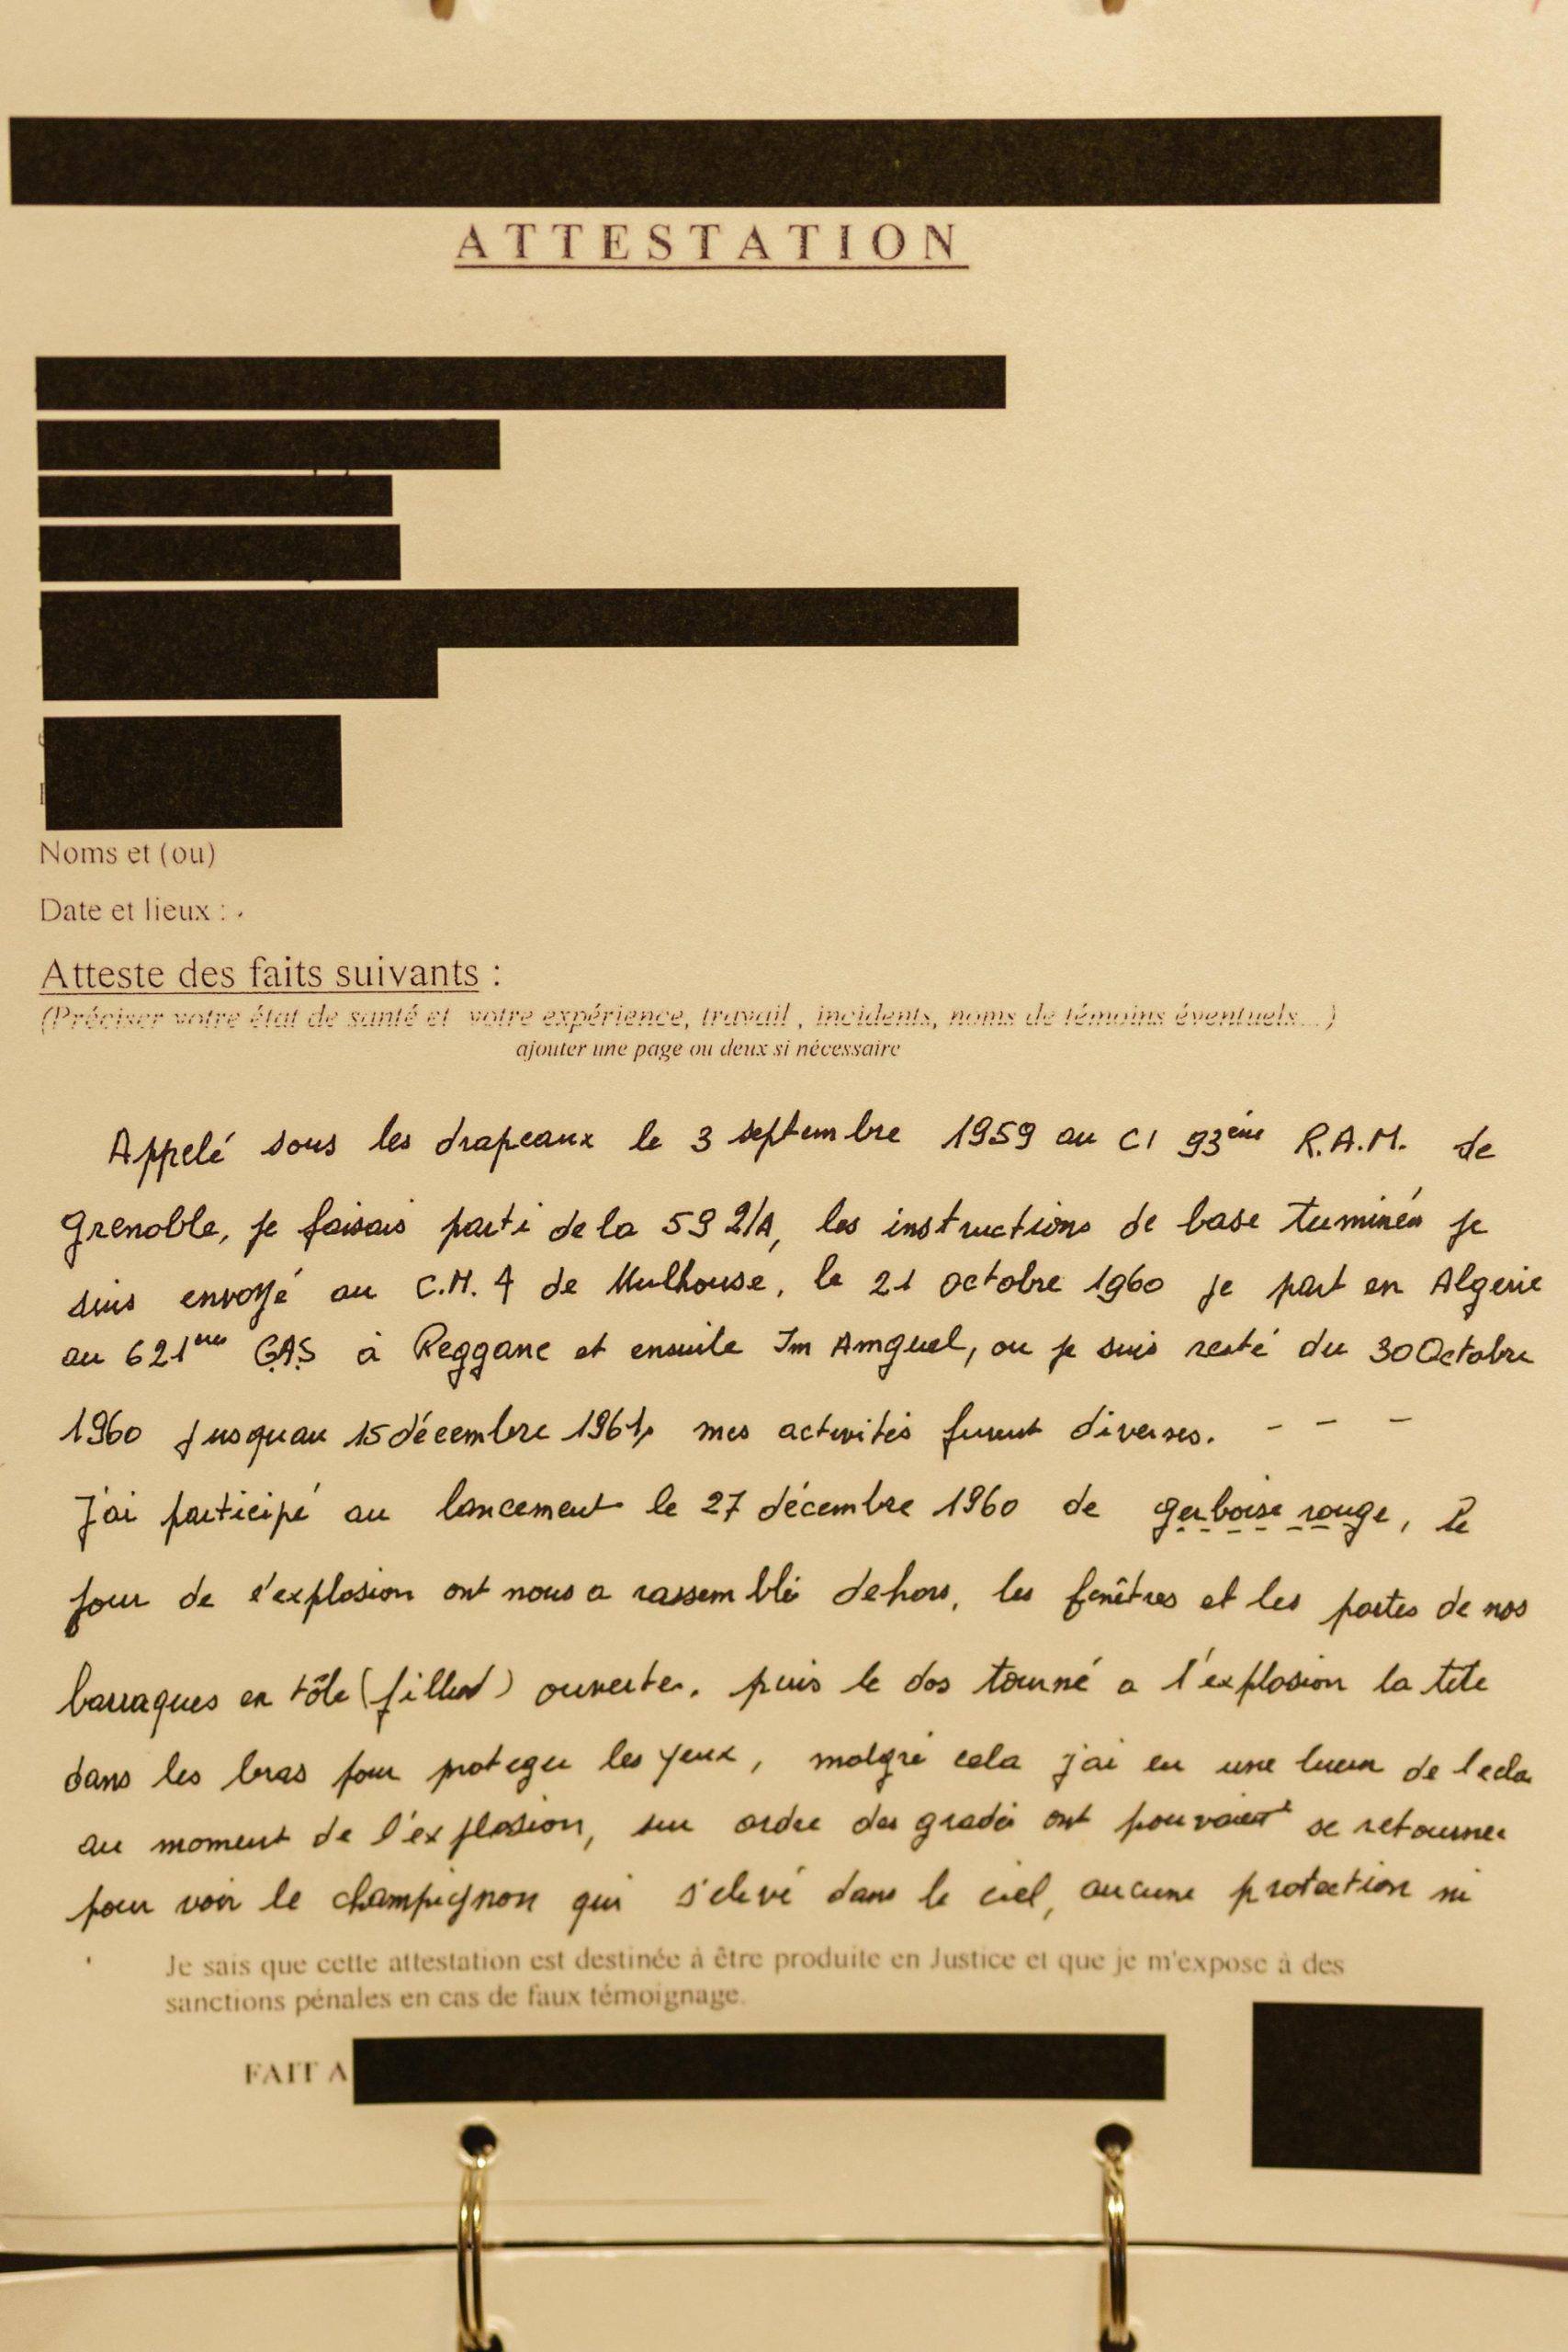 ATTESTATION
Noms et (ou)
Date et lieux :
Atteste des faits suivants :
(Préciser votre état de santé et votre expérience, travail , incidents, noms de témoins éventuels....)
ajouter une page ou deux si nécessaire
Appelé sous les drapeaux le 3 septembre 1959 au CI 93ème R.A.M. de
Grenoble, je faisais parti de la 59 2/A, les instructions de base terminées je
suis envoyé au C.M. 4 de Mulhouse, le 21 octobre 1960 je part en Algerie
au 621ème GAS à Reggane et ensuite Im Amguel, ou je suis resté du 30 Octobre
1960 jusquau 15 décembre 1961, mes activités furent diverses. - - -
J'ai participé au lancement le 27 décembre 1960 de gerboise rouge, le
jour de l'explosion ont nous a rassemblé dehors, les fenêtres et les portes de nos
barraques en tôle (fillod) ouvertes. puis le dos tourné a l'explosion la tete
dans les bras pour proteger les yeux, malgré cela j'ai eu une lueur de lecla
au moment de l'explosion, sur ordre des gradés ont pouvait se retourner
pour voir le champignon qui s'elevé dans le ciel, aucune protection ni
Je sais que cette attestation est destinée à être produite en Justice et que je m'expose à des
sanctions pénales en cas de faux témoignage.
FAIT A